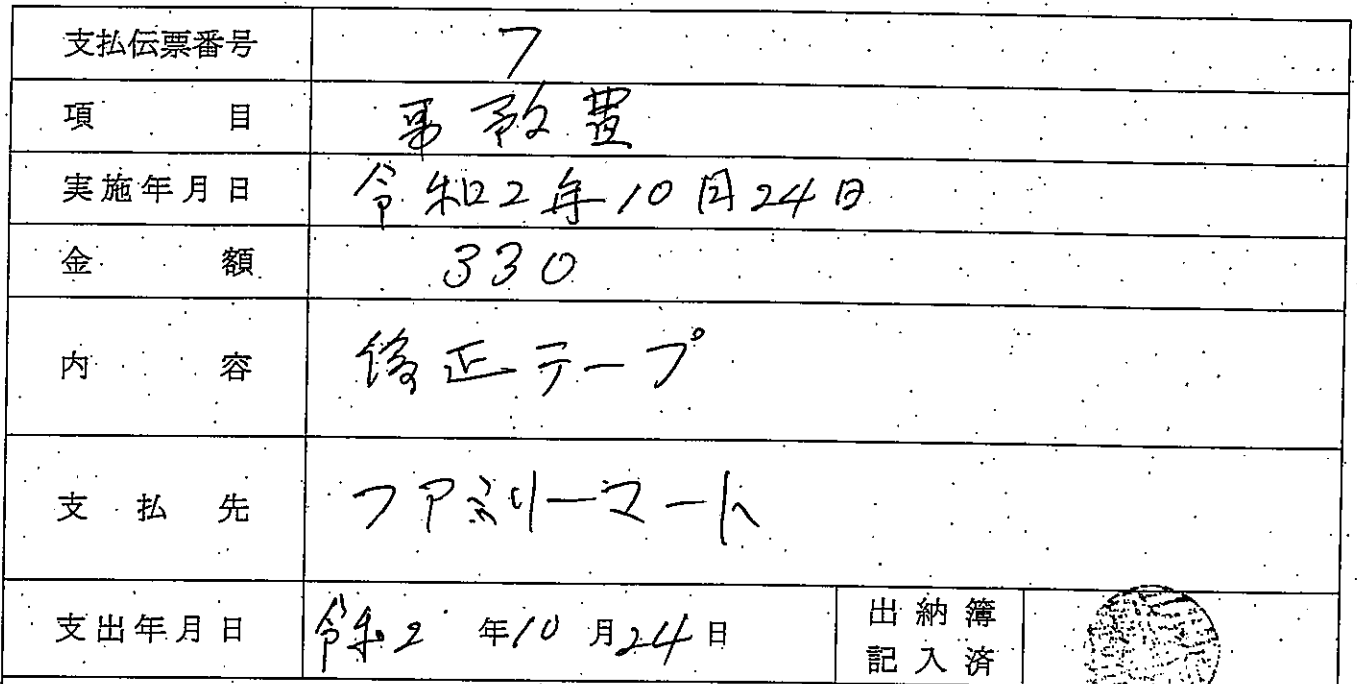 支払伝票番号 7
項目 事務費
実施年月日 令和2年10月24日
金額 330
内容 修正テープ
支払先 ファミリーマート
支出年月日 令和2年10月24日 出納簿
記入済